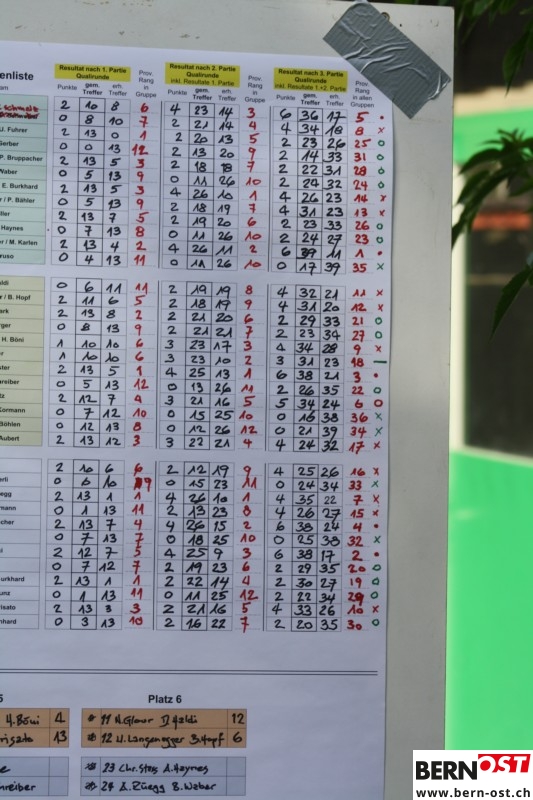 enliste
Resultat nach 1. Partie Qualirunde
Resultat nach 2. Partie Qualirunde inkl. Resultate 1. Partie
Resultat nach 3. Partie Qualirunde inkl. Resultate 1.+2. Partie
Punkte gem. Treffer erh. Treffer Prov. Rang in Gruppe
Punkte gem. Treffer erh. Treffer Prov. Rang in Gruppe
Punkte gem. Treffer erh. Treffer Prov. Rang in allen Gruppen
2 10 8 6 4 23 14 3 6 36 17 5
0 8 10 7 2 21 14 4 4 34 18 8 x
J. Fuhrer 2 13 0 1 2 20 13 5 2 23 26 25 o
Gerber 0 0 13 12 2 13 20 9 2 14 33 31 o
P. Bruppacher 2 13 5 3 2 18 18 7 2 22 31 28 o
Waber 0 5 13 9 0 11 26 10 2 24 32 24 o
E. Burkhard 2 13 5 3 4 26 10 1 4 26 23 14 x
/ P. Bähler 0 5 13 9 2 18 19 7 4 31 23 13 x
ller 2 13 7 5 2 19 20 6 2 23 33 26 o
Haynes 0 7 13 8 0 11 26 10 2 24 27 23 o
r / M. Karlen 2 13 4 2 4 26 11 2 6 39 11 1
ruso 0 4 13 11 0 11 26 10 0 17 39 35 x
aldi 0 6 11 11 2 19 19 8 4 32 21 11 x
r / B. Hopf 2 11 6 5 2 18 17 9 4 31 20 12 x
ark 2 13 8 2 2 21 20 6 2 29 33 21 o
rger 0 8 13 9 2 21 21 7 2 23 34 27 o
H. Böni 1 10 10 6 3 23 17 3 4 34 28 9 x
ir 1 10 10 6 3 23 10 2 3 31 23 18 —
ster 2 13 5 1 4 25 13 1 6 38 21 3
hreiber 0 5 13 12 0 13 26 11 2 26 35 22 o
tz 2 12 7 4 3 21 16 5 5 34 24 6 o
Kormann 0 7 12 10 0 15 25 10 0 16 38 36 x
Böhlen 0 12 13 8 0 12 26 12 0 21 39 34 x
Aubert 2 13 12 3 3 22 21 4 4 24 32 17 x
2 10 6 6 2 12 19 9 4 25 26 16 x
erli 0 6 10 9 0 15 23 11 0 24 34 33 x
egg 2 13 1 1 4 26 10 1 4 35 22 7 x
mann 0 1 13 11 2 13 23 8 4 26 27 15 x
cher 2 13 7 4 4 26 15 2 6 38 24 4
0 7 13 7 0 18 25 10 0 25 38 32 x
i 2 12 7 5 4 25 9 3 6 38 17 2
0 7 12 7 2 19 23 6 2 29 35 20 o
urkhard 2 13 1 1 2 22 14 4 2 30 27 19 o
unz 0 1 13 11 0 11 25 12 2 22 34 29 o
risato 2 13 3 3 2 21 16 5 4 33 26 10 x
nhard 0 3 13 10 2 16 22 7 2 20 35 30 o
5 Platz 6
H. Böni 4 11 H. Glaur D. Haldi 12
risato 13 12 U. Langenegger B. Hopf 6
e 23 Chr. Steg A. Haynes
hreiber 24 A. Züegg B. Waber
BERNOST
www.bern-ost.ch